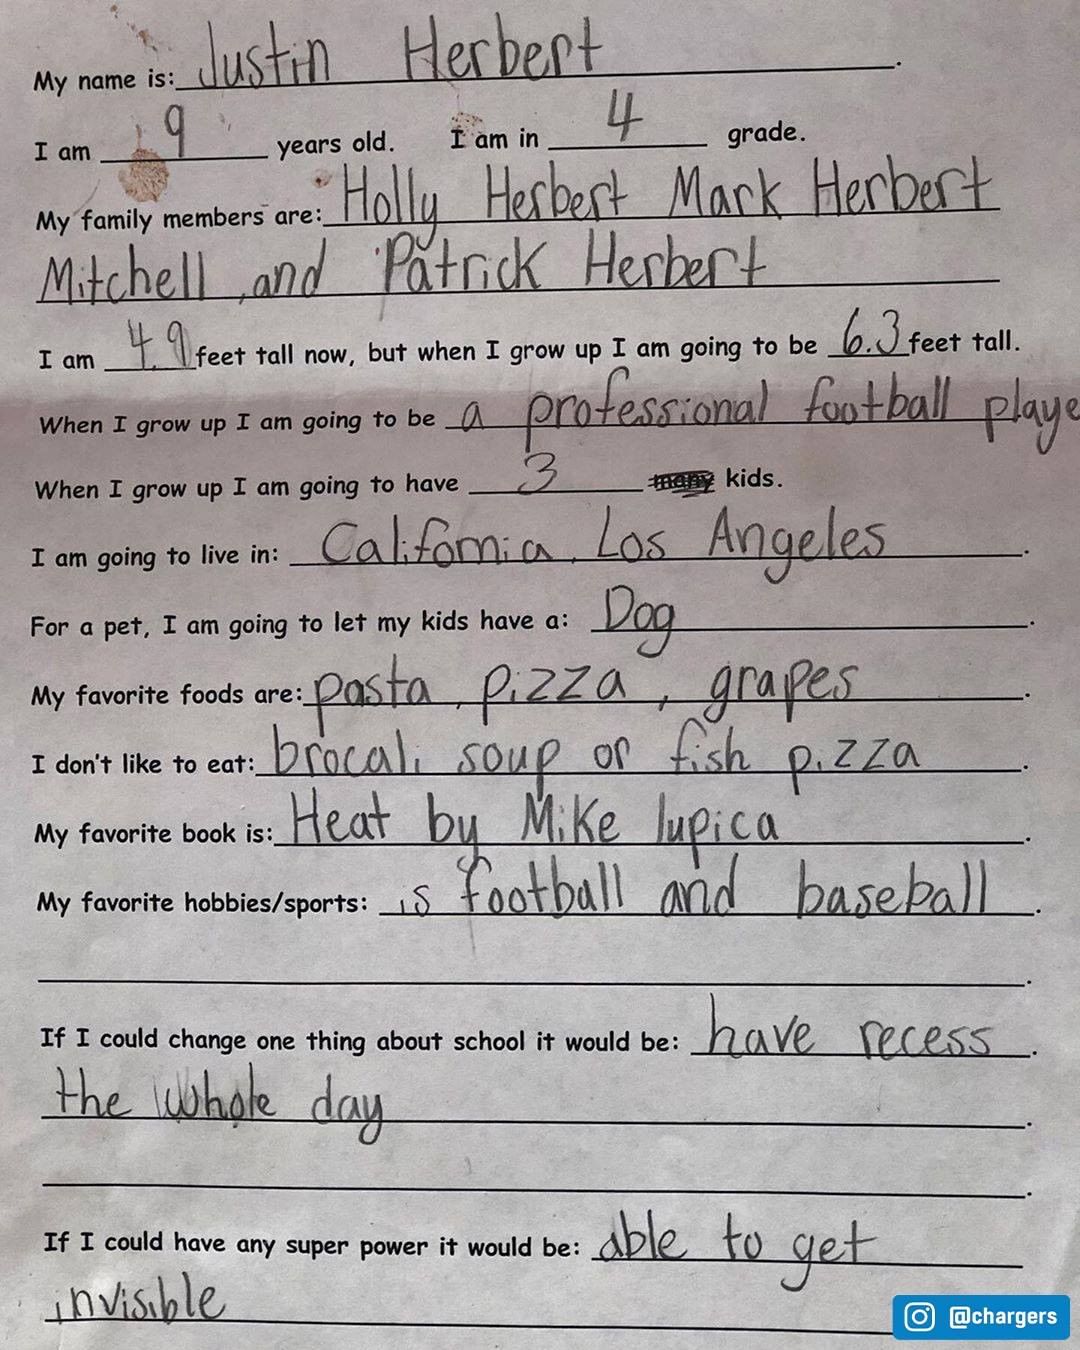 My name is: Justin Herbert.
I am 9 years old. I am in 4 grade.
My family members are: Holly Herbert Mark Herbert
Mitchell, and Patrick Herbert
I am 4.9 feet tall now, but when I grow up I am going to be 6.3 feet tall.
When I grow up I am going to be a professional football playe
When I grow up I am going to have 3 many kids.
I am going to live in: California, Los Angeles.
For a pet, I am going to let my kids have a: Dog.
My favorite foods are: pasta, pizza, grapes.
I don't like to eat: brocali soup or fish pizza.
My favorite book is: Heat by Mike lupica.
My favorite hobbies/sports: is football and baseball.
.
If I could change one thing about school it would be: have recess.
the whole day.
.
If I could have any super power it would be: able to get
invisible
@chargers